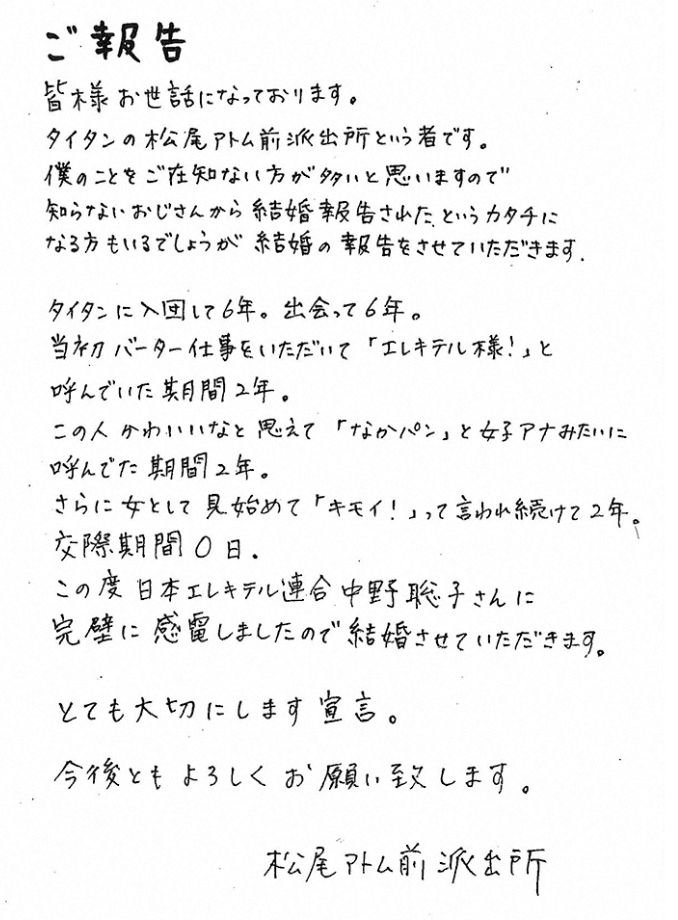 ご報告
皆様お世話になっております。
タイタンの松尾アトム前派出所という者です。
僕のことをご存知ない方が多いと思いますので
知らないおじさんから結婚報告されたというカタチに
なる方もいるでしょうが結婚の報告をさせていただきます.
タイタンに入団して6年。出会って6年。
当初バーター仕事をいただいて「エレキテル様！」と
呼んでいた期間2年。
この人かわいいなと思えて「なかパン」と女子アナみたいに
呼んでた期間2年。
さらに女として見始めて「キモイ！」って言われ続けて2年。
交際期間0日.
この度日本エレキテル連合中野聡子さんに
完璧に感電しましたので結婚させていただきます。
とても大切にします宣言。
今後ともよろしくお願い致します。
松尾アトム前派出所